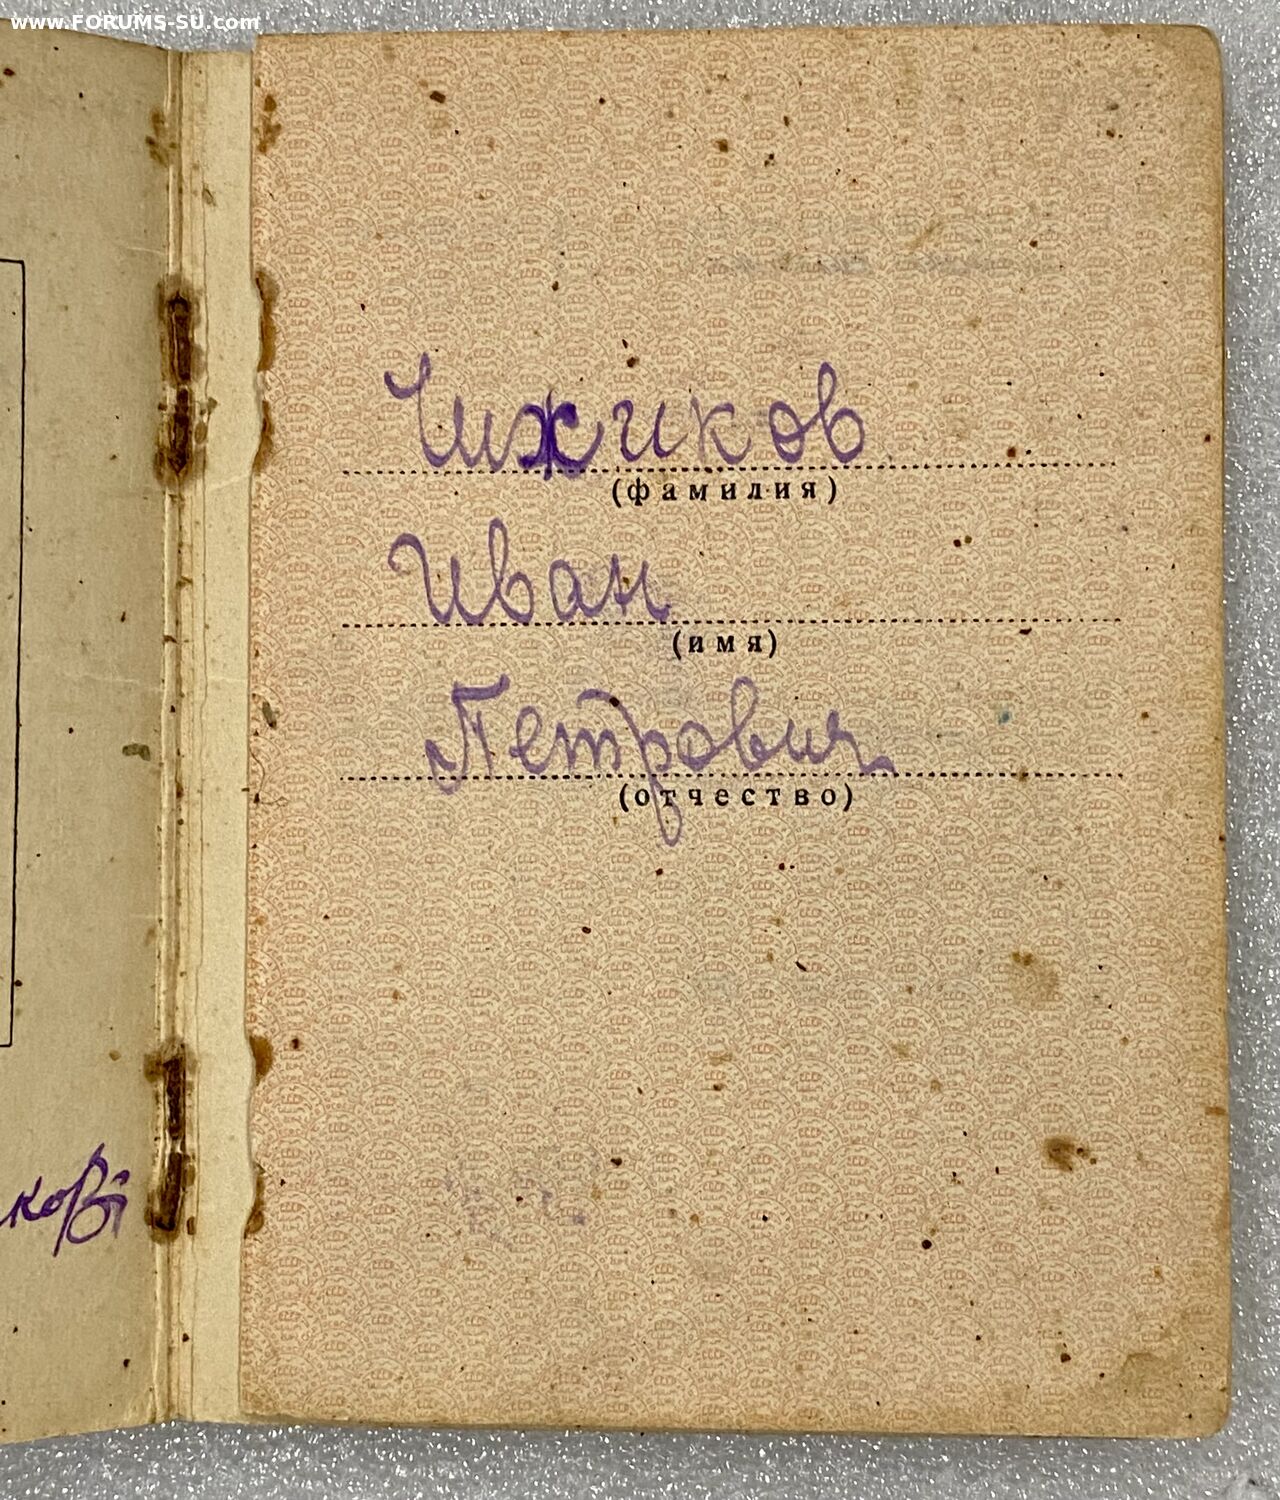 www.FORUMS-SU.com
Чижиков
(фамилия)
Иван
(имя)
Петрович
(отчество)